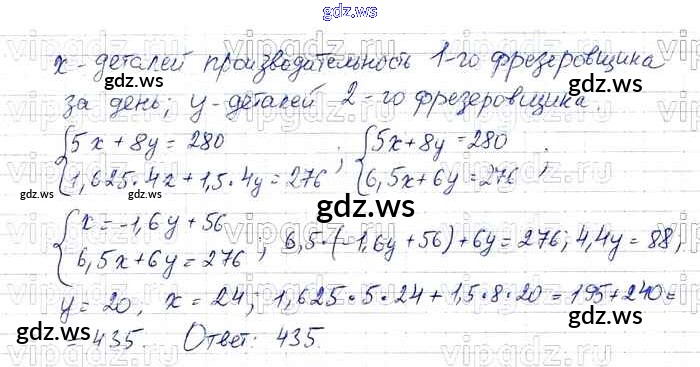 gdz.ws
x - деталей производительность 1-го фрезеровщика
gdz.ws
за день; y - деталей 2-го фрезеровщика.
{5x+8y=280 {5x+8y=280
{1,625·4x+1,5·4y=276 ; {6,5x+6y=276 ;
gdz.ws
{x=-1,6y+56
{6,5x+6y=276 ; 6,5·(-1,6y+56)+6y=276; 4,4y=88;
gdz.ws
y=20, x=24; 1,625·5·24+1,5·8·20=195+240=
gdz.ws
=435. Ответ: 435.
gdz.ws